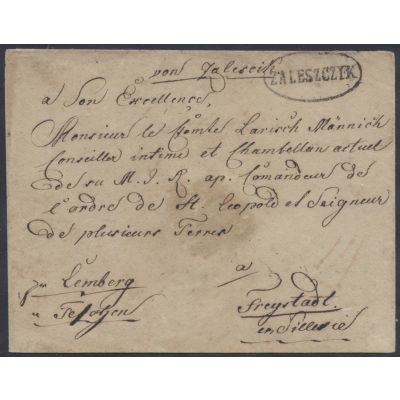 von Zalescik.
ZALESZCZYK
a Son Excellence,
Monsieur le Comte Larisch Männich
Conseiller intime et Chambellan actuel
de sa M. I. R. ap. Comandeur de
l'ordre de St. Leopold et Seigneur
de plusieurs Terres
Lemberg
a
Teschen
Freystadt
en Silesie